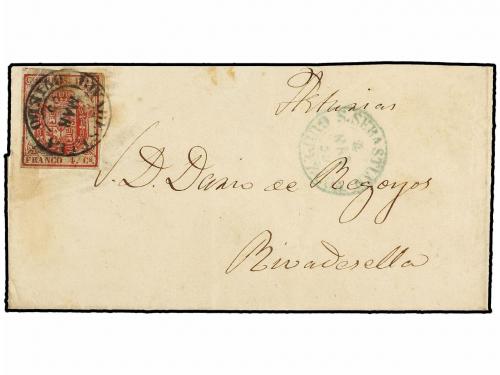 FRANCO 4 Cs.
MAR
Asturias
S. SEBASTIAN
S. D. Dario de Regoyos
Rivadesella